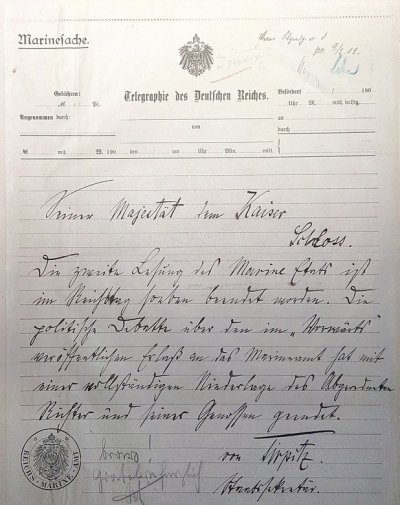 Marinesache.
Telegraphie des Deutschen Reiches.
Gebühren:
M. Pf.
Befördert 190
Uhr M. mitt. in Ltg.
Angenommen durch:
von
an
durch
190 den um Uhr Min. mitt.
Seiner Majestät dem Kaiser
Schloss.
Die zweite Lesung des Marine Etats ist
im Reichstag soeben beendet worden. Die
politische Debatte über den im „Vorwärts"
veröffentlichten Erlaß an das Marineamt hat mit
einer vollständigen Niederlage des Abgeordneten
Richter und seiner Genossen geendet.
von Tirpitz.
Staatssekretär.
bravo!
Gratuliere herzlich
REICHS-MARINE-AMT